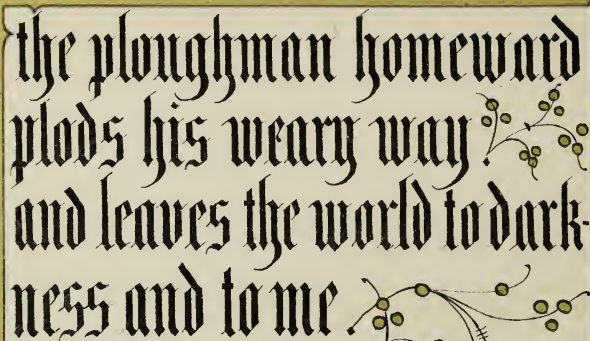 the ploughman homeward
plods his weary way .
and leaves the world to dark-
ness and to me .